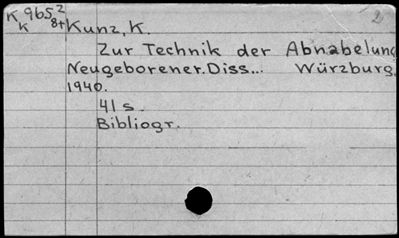 K 9652
K 8+ Kunz, K.
Zur Technik der Abnabelung
Neugeborener. Diss... Würzburg.
1940.
41 s.
Bibliogr.